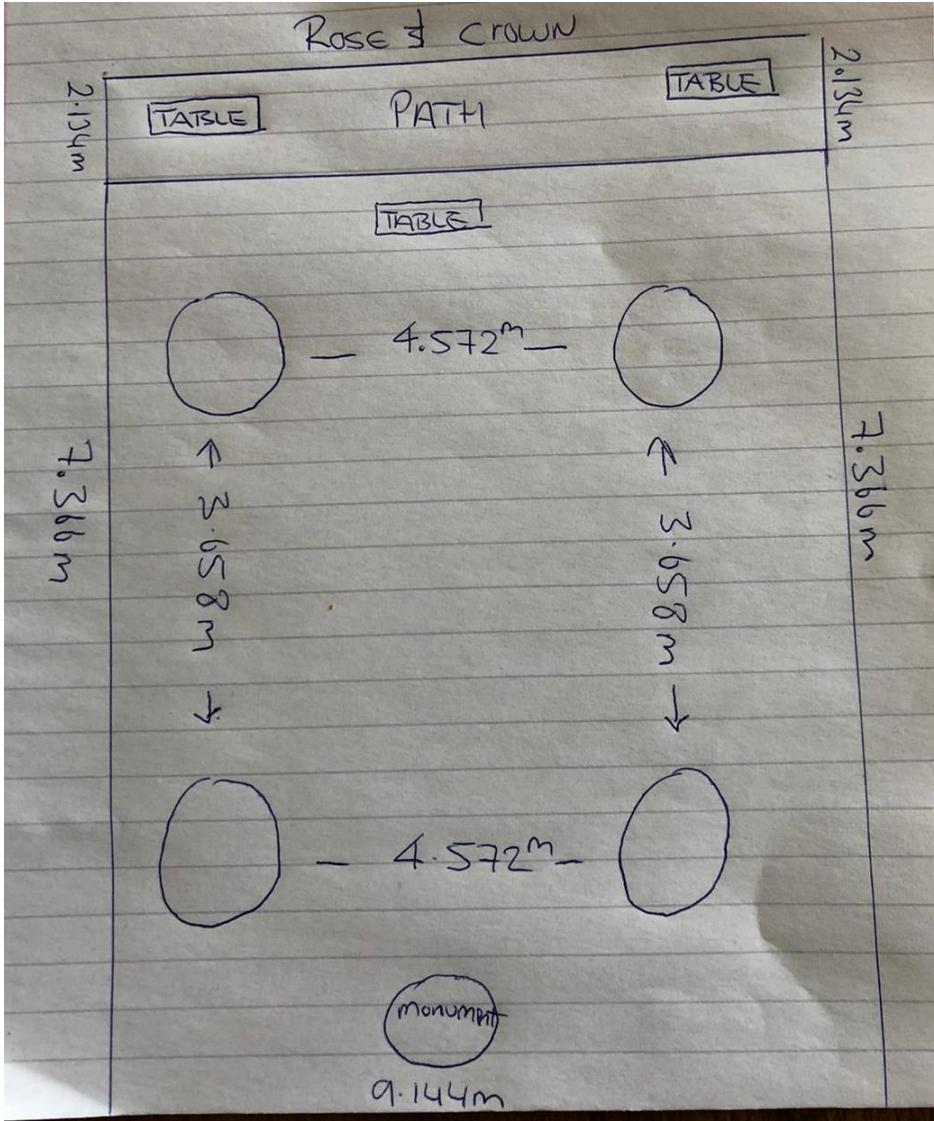 ROSE & CROWN
2.134m
2.134m
TABLE
PATH
TABLE
TABLE
4.572m
7.366m
3.658m
3.658m
7.366m
4.572m
monument
9.144m